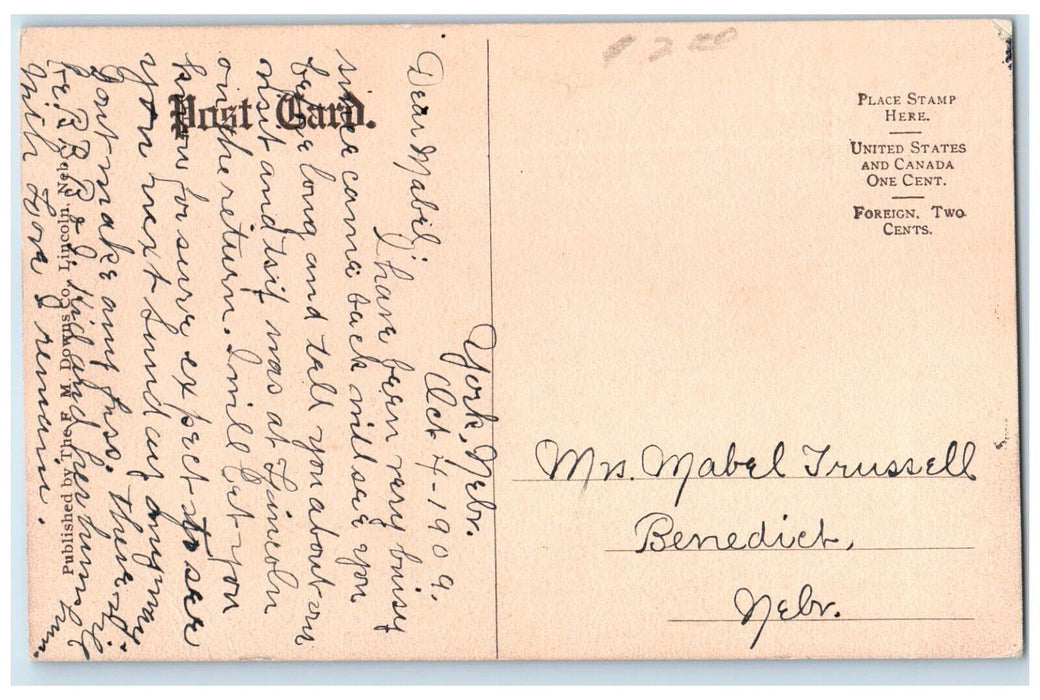 Post Card.
Published by The F M Downs Co., Lincoln, Neb.
$2.00
PLACE STAMP
HERE.
UNITED STATES
AND CANADA
ONE CENT.
FOREIGN. TWO
CENTS.
York, Nebr.
Oct 4-1909.
Dear Mabel;
I have been very buisy
since came back will see you
before long and tell you about my
visit and trip was at Lincoln
on the return. I will let you
know for sure expect to see
you next Sunday anyway.
Dont make any fuss. There
will be
With Love I remain.
Mrs. Mabel Trussell
Benedict,
Nebr.